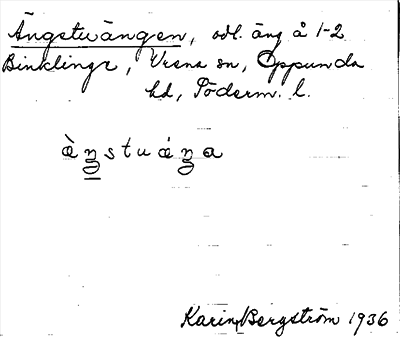 Ängstvängen, odl. äng å 1-2
Binklinge, Vrena sn, Oppunda
hd, Söderm. l.
æ̀ŋstuǽŋa
Karin Bergström 1936